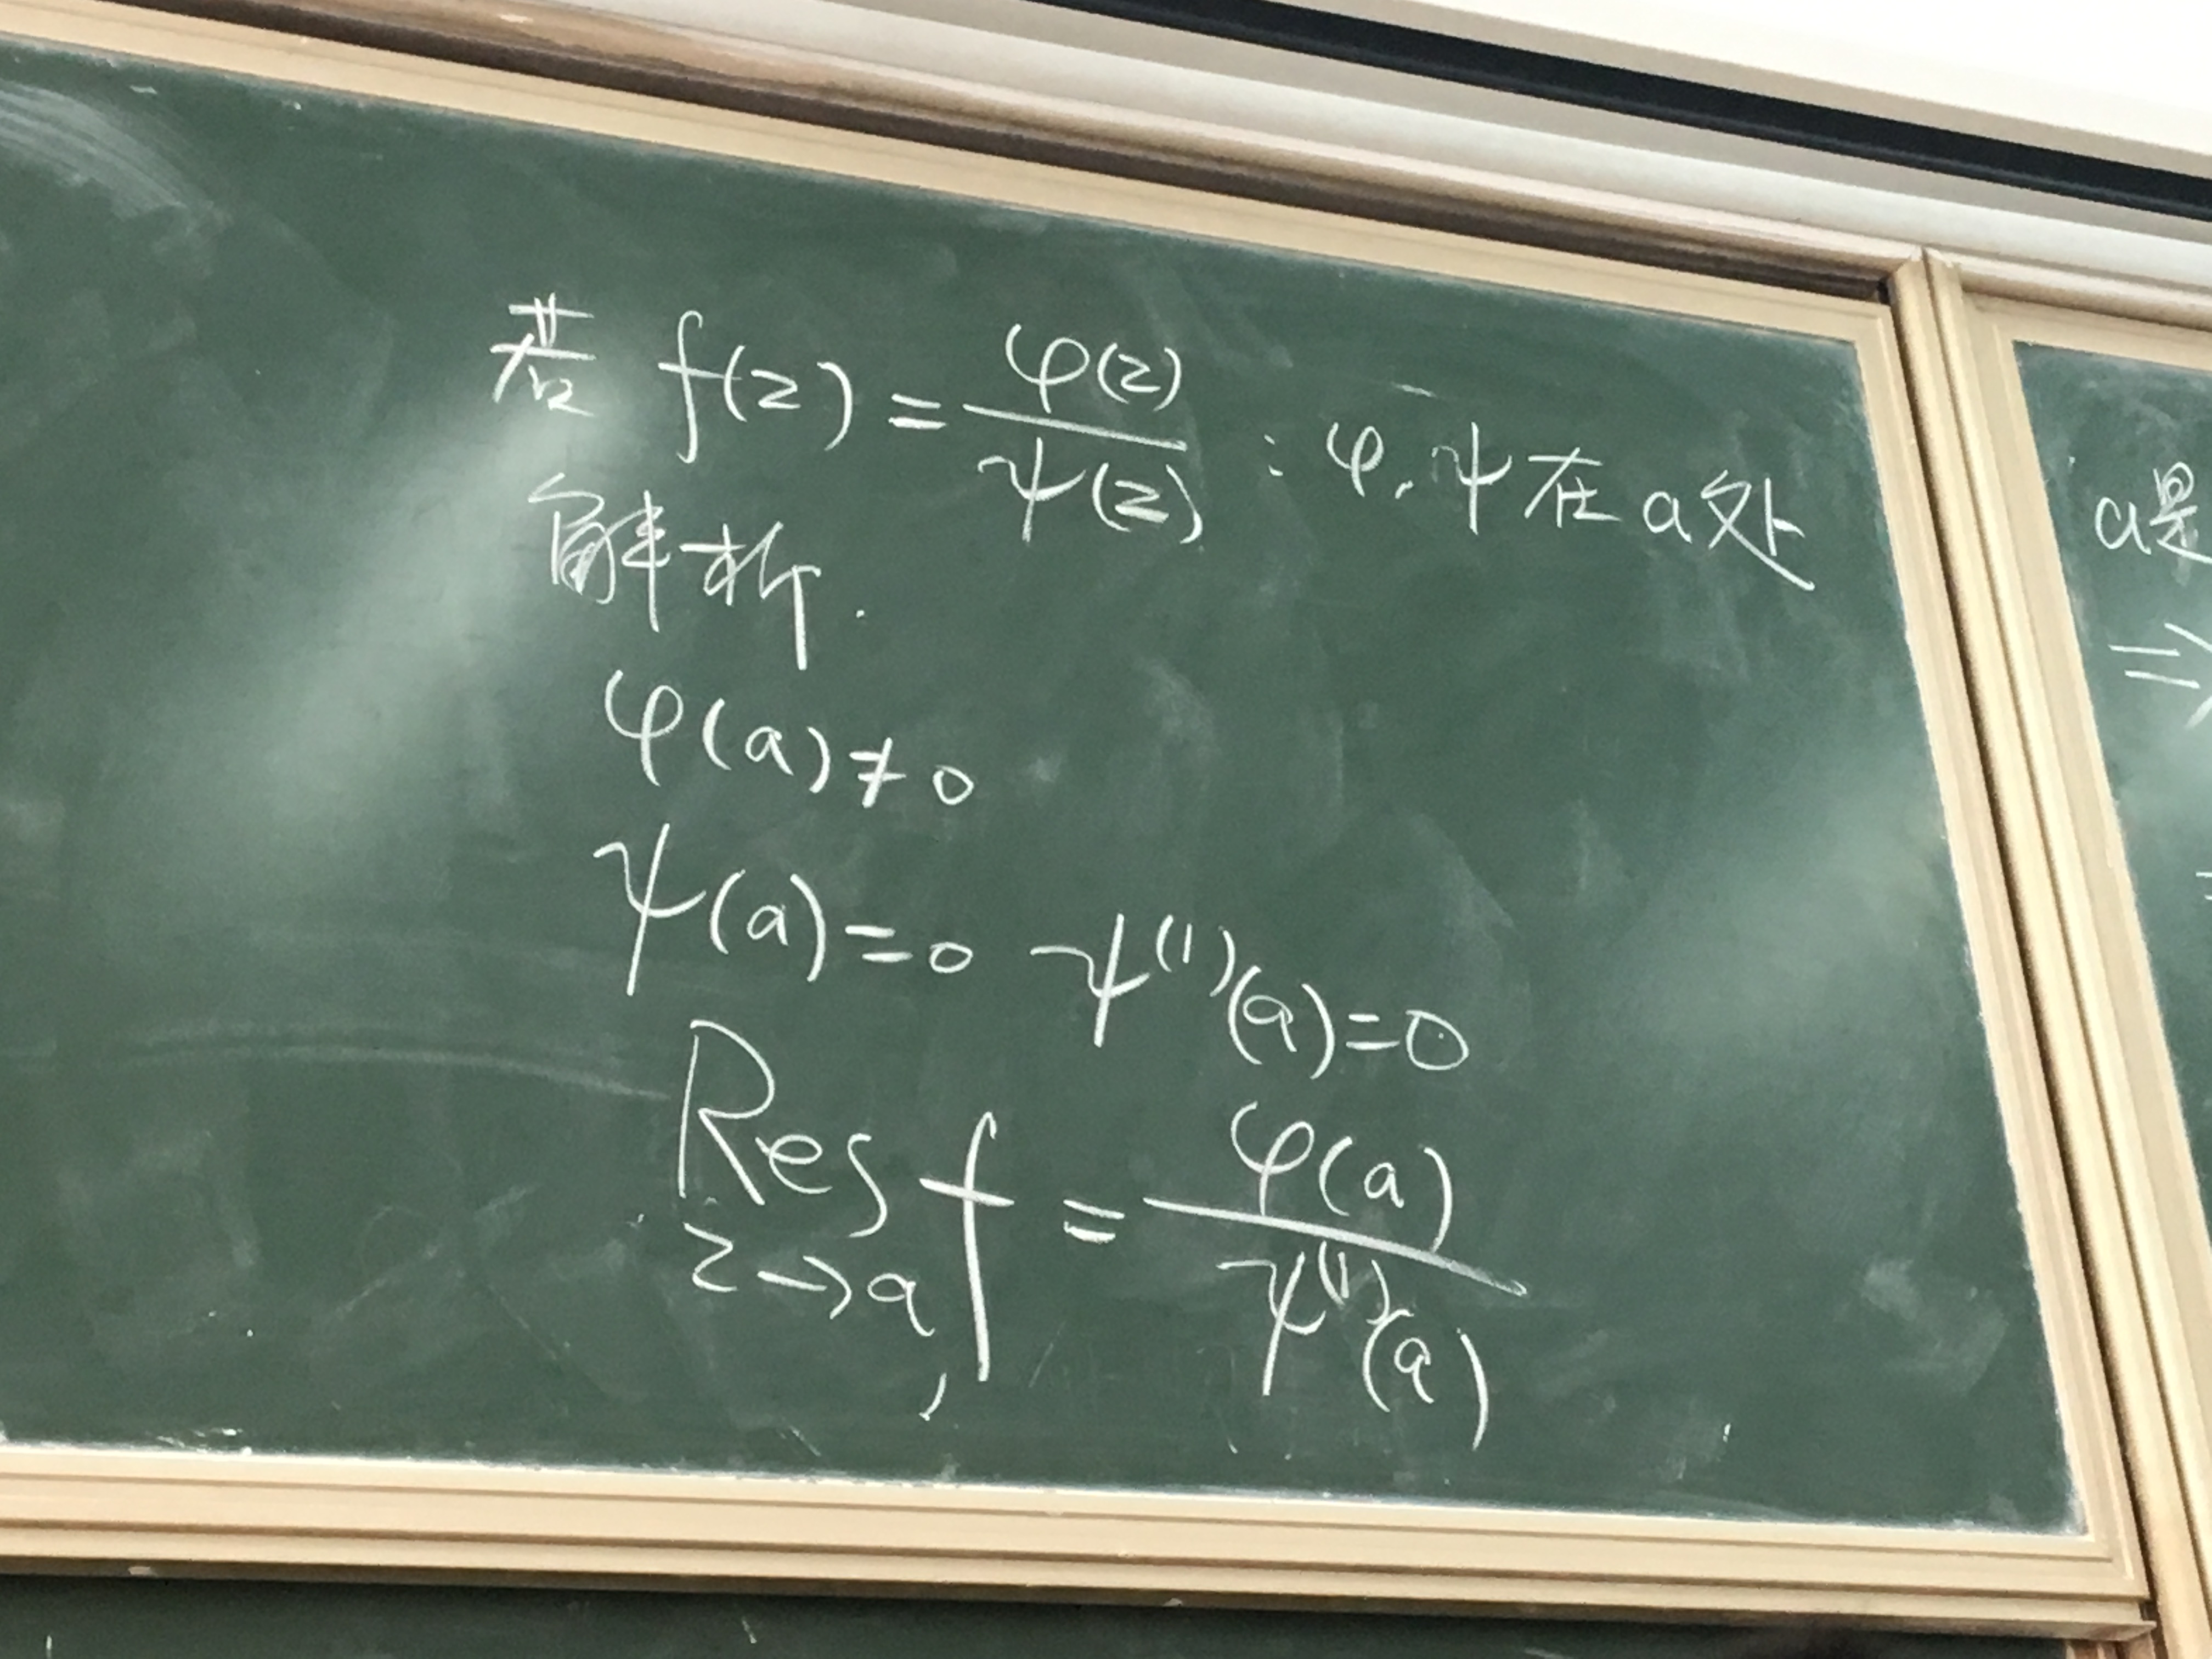 若 f(z) = φ(z)/ψ(z) : φ, ψ在a处
解析.
φ(a)≠0
ψ(a)=0 ψ⁽¹⁾(a)=0
Res f = φ(a)/ψ⁽¹⁾(a)
z→a,
a是
⇒